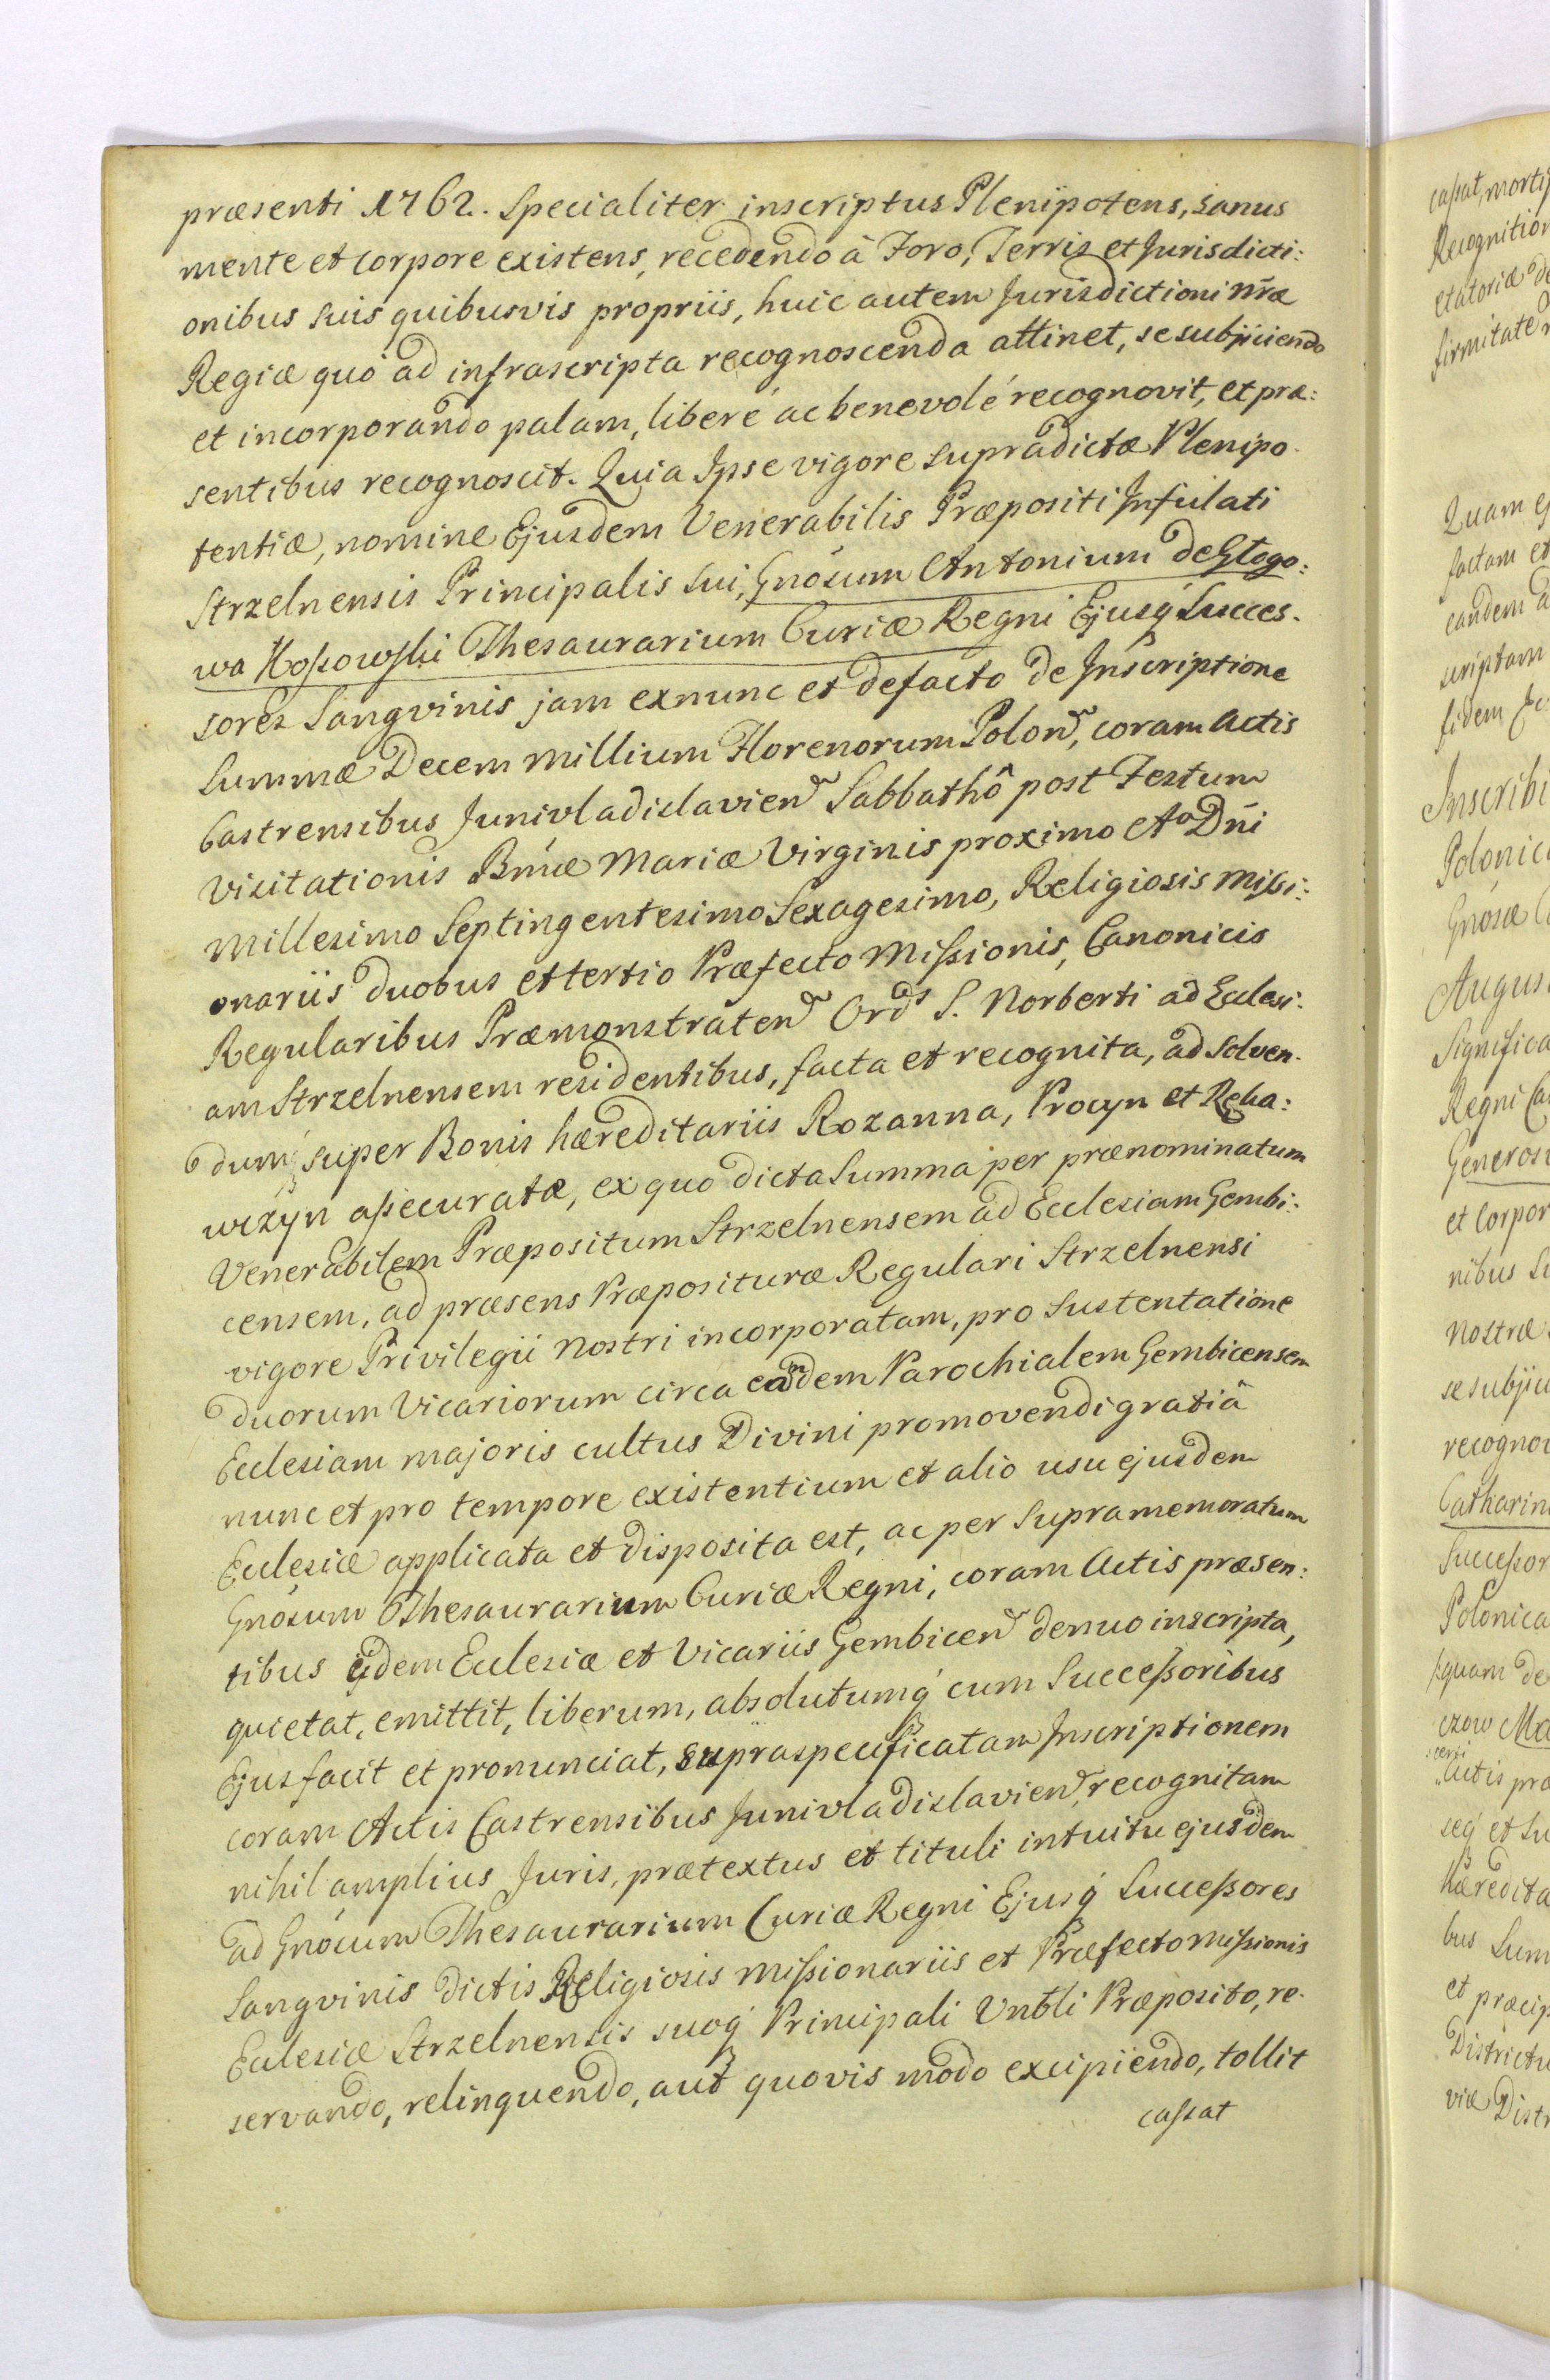 præsenti 1762. Specialiter inscriptus Plenipotens, sanus
mente et corpore existens, recedendo â Foro, Terris et Jurisdicti:
onibus suis quibusvis propriis, huic autem Jurisdictioni nr̃æ
Regiæ quó ad infrascripta recognoscenda attinet, se subjiciendo
et incorporando palam, liberé ac benevolé recognovit, et præ:
sentibus recognoscit. Quia Ipse vigore supradictæ Plenipo-
tentiæ, nomine Ejusdem Venerabilis Præpositi Infulati
Strzelnensis Principalis sui, Gnõsum Antonium de Głogo:
wa Kossowski Thesaurarium Curiæ Regni Ejusq́ Succes-
sores Sangvinis jam exnunc et defacto de Inscriptione
Summæ Decem millium Florenorum Polon̄, coram Actis
Castrensibus Junivladislavien̄ Sabbathô post Festum
Visitationis Bm̃æ Mariæ Virginis proximo Aº Dñi
Millesimo Septingentesimo Sexagesimo, Religiosis Missi:
onariis duobus et tertio Præfecto Missionis, Canonicis
Regularibus Præmonstraten̄ Ord͂s S. Norberti ad Eclesi:
am Strzelnensem residentibus, facta et recognita, ad solven-
dumq́ super Bonis hæreditariis Rozanna, Procyn et Reha:
wczyn assecuratæ, ex quo dicta Summa per prænominatum
Venerabilem Præpositum Strzelnensem ad Ecclesiam Gembi:
censem, ad præsens Præposituræ Regulari Strzelnensi
vigore Privilegii Nostri incorporatam, pro sustentatione
duorum Vicariorum circa eandem Parochialem Gembicensem
Ecclesiam majoris cultus Divini promovendi gratiâ
nunc et pro tempore existentium et alio usu ejusdem
Ecclesiæ applicata et disposita est, ac per supramemoratum
Gnõsum Thesaurarium Curiæ Regni, coram Actis præsen:
tibus eidem Eclesiæ et Vicariis Gembicen̄ denuo inscripta,
quietat, emittit, liberum, absolutumq́ cum Successoribus
Ejus facit et pronunciat, supraspecificatam Inscriptionem
coram Actis Castrensibus Junivladislavien̄, recognitam
nihil amplius Juris, prætextus et tituli intuitu ejusdem
ad Gnõsum Thesaurarium Curiæ Regni Ejusq́ Successores
Sangvinis dictis Religiosis Missionariis et Præfecto Missionis
Eclesiæ Strzelnensis suoq́ Principali Vnb̃li Præposito, re-
servando, relinquendo, aut quovis modo excipiendo, tollit
cassat
cassat, morti
Recognition
etatoriæ de
firmitate
Quam
factam et
eandem a
scriptam
fidem
Inscribi
Polonic
Gnõsæ
August
Significa
Regni Ca
Generos
et Corpor
nibus Su
Nostræ
se subjici
recogno
Catharin
Successor
Polonica
quam de
czow Ma
Actis pra
seq́ et Su
hæredita
bus Sum
et præcip
Districtu
viæ Distr